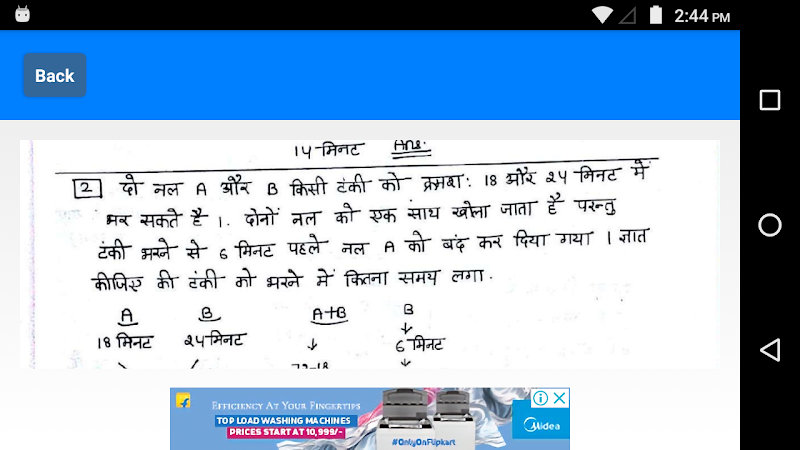 2:44 PM
Back
14 मिनट Ans.
2 दो नल A और B किसी टंकी को क्रमश: 18 और 24 मिनट में
भर सकते है 1. दोनों नल को एक साथ खोला जाता है परन्तु
टंकी भरने से 6 मिनट पहले नल A को बंद कर दिया गया । ज्ञात
कीजिए की टंकी को भरने में कितना समय लगा.
A B A+B B
18 मिनट 24 मिनट ↓ ↓
6 मिनट
72-18
EFFICIENCY AT YOUR FINGERTIPS
TOP LOAD WASHING MACHINES
PRICES START AT 10,999/-
#OnlyOnFlipkart
Midea